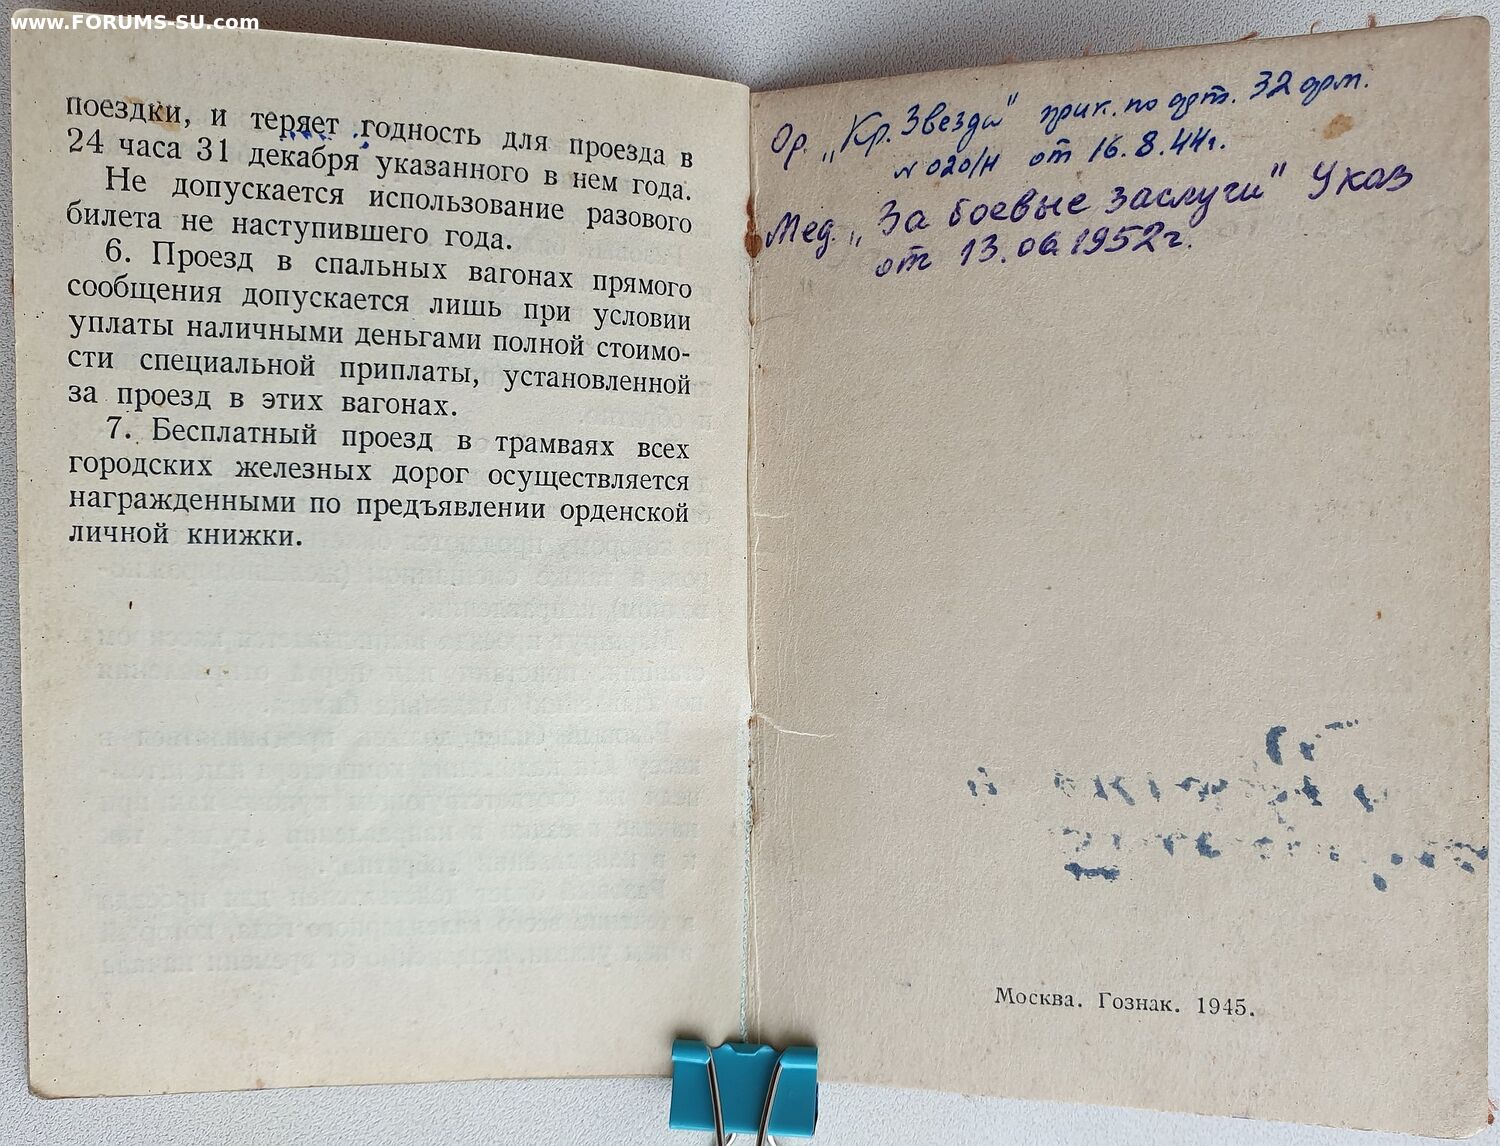 www.FORUMS-SU.com
поездки, и теряет годность для проезда в
24 часа 31 декабря указанного в нем года.
Не допускается использование разового
билета не наступившего года.
6. Проезд в спальных вагонах прямого
сообщения допускается лишь при условии
уплаты наличными деньгами полной стоимо-
сти специальной приплаты, установленной
за проезд в этих вагонах.
7. Бесплатный проезд в трамваях всех
городских железных дорог осуществляется
награжденными по предъявлении орденской
личной книжки.
Ор. „Кр. Звезды" прик. по арт. 32 арм.
№ 020/н от 16.8.44г.
Мед. „За боевые заслуги" Указ
от 13.06.1952г.
Москва. Гознак. 1945.